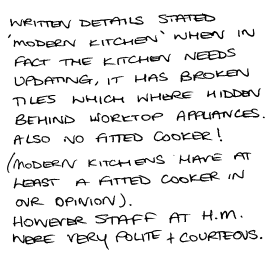 WRITTEN DETAILS STATED
'MODERN KITCHEN' WHEN IN
FACT THE KITCHEN NEEDS
UPDATING, IT HAS BROKEN
TILES WHICH WHERE HIDDEN
BEHIND WORKTOP APPLIANCES.
ALSO NO FITTED COOKER!
(MODERN KITCHENS HAVE AT
LEAST A FITTED COOKER IN
OUR OPINION).
HOWEVER STAFF AT H.M.
WERE VERY POLITE + COURTEOUS.